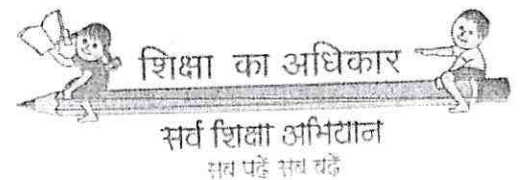 शिक्षा का अधिकार
सर्व शिक्षा अभियान
सब पढ़ें सब बढ़ें